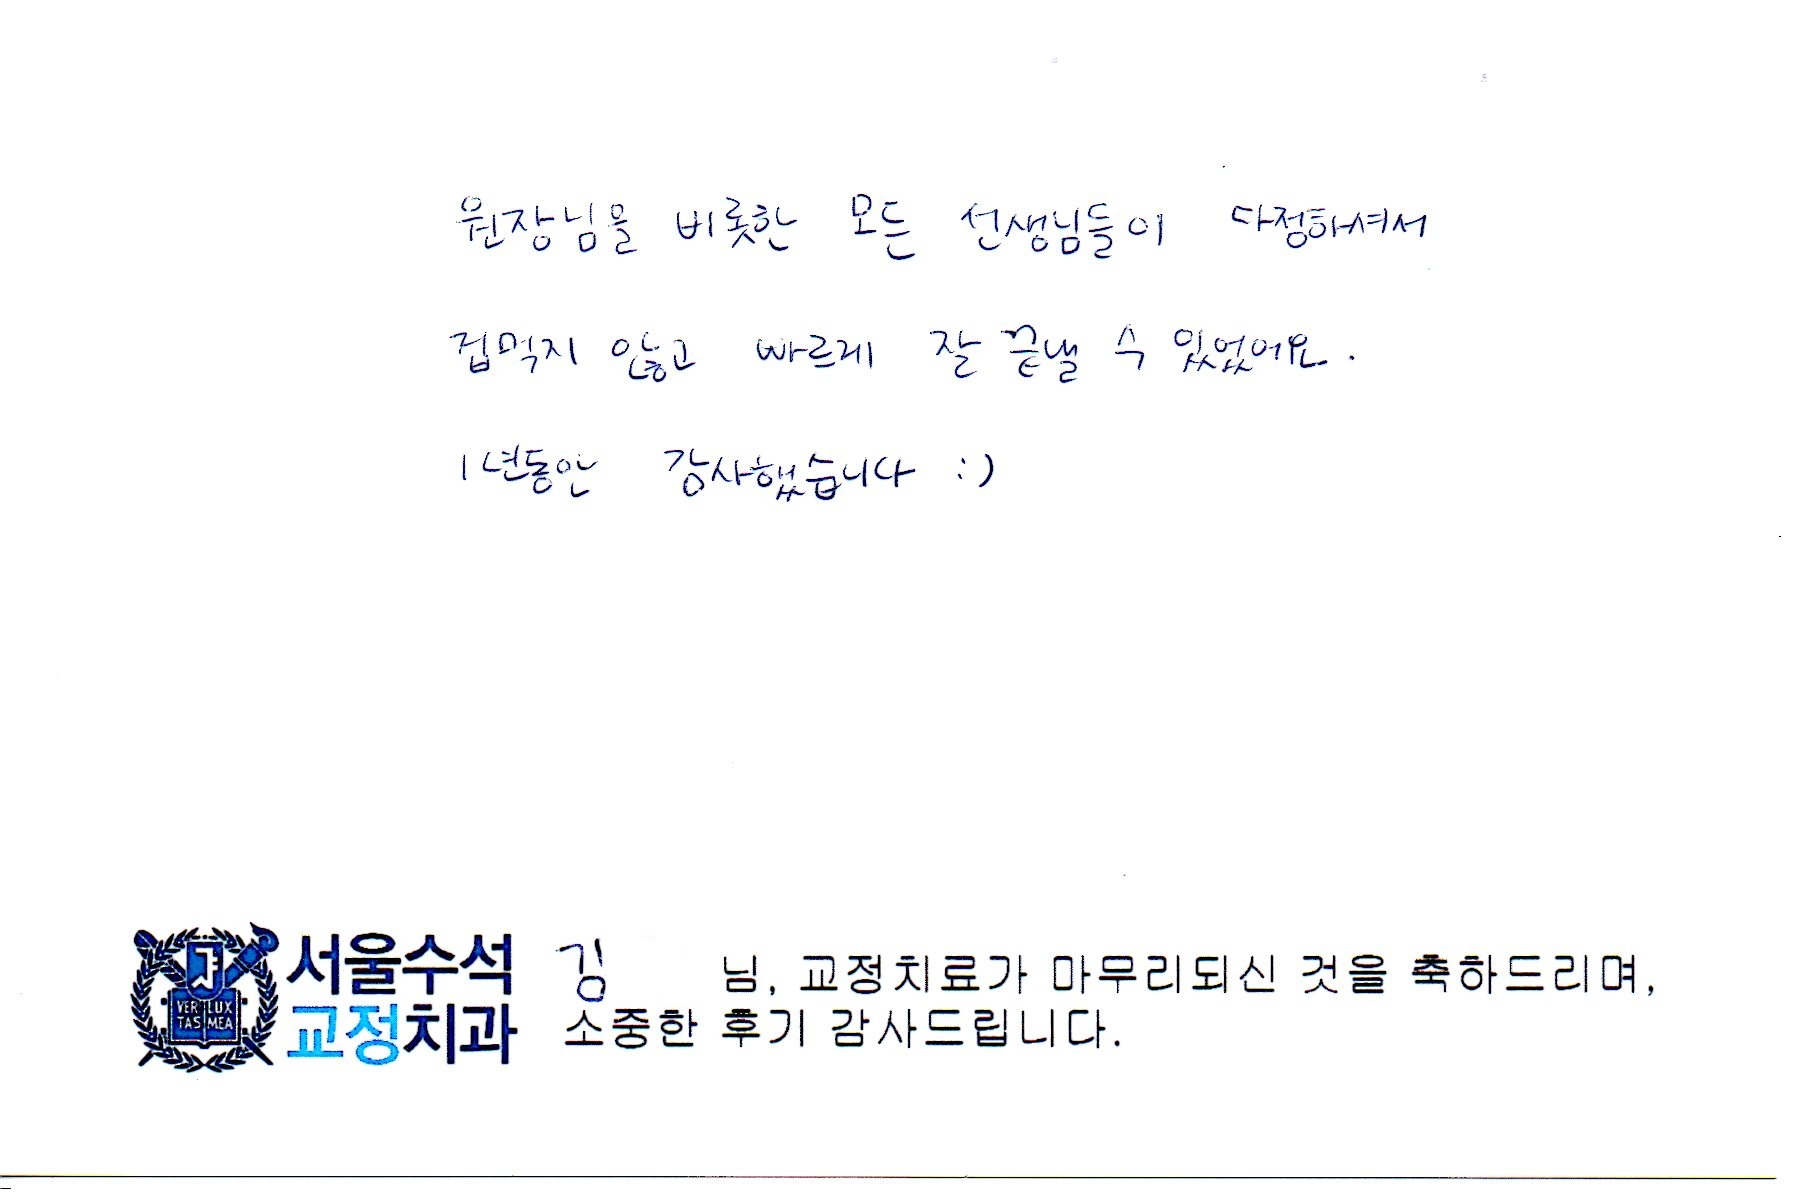 원장님을 비롯한 모든 선생님들이 다정하셔서
겁먹지 않고 빠르게 잘 끝낼 수 있었어요.
1년동안 감사했습니다 :)
VERI LUX
TAS MEA
서울수석
교정치과
김 님, 교정치료가 마무리되신 것을 축하드리며,
소중한 후기 감사드립니다.